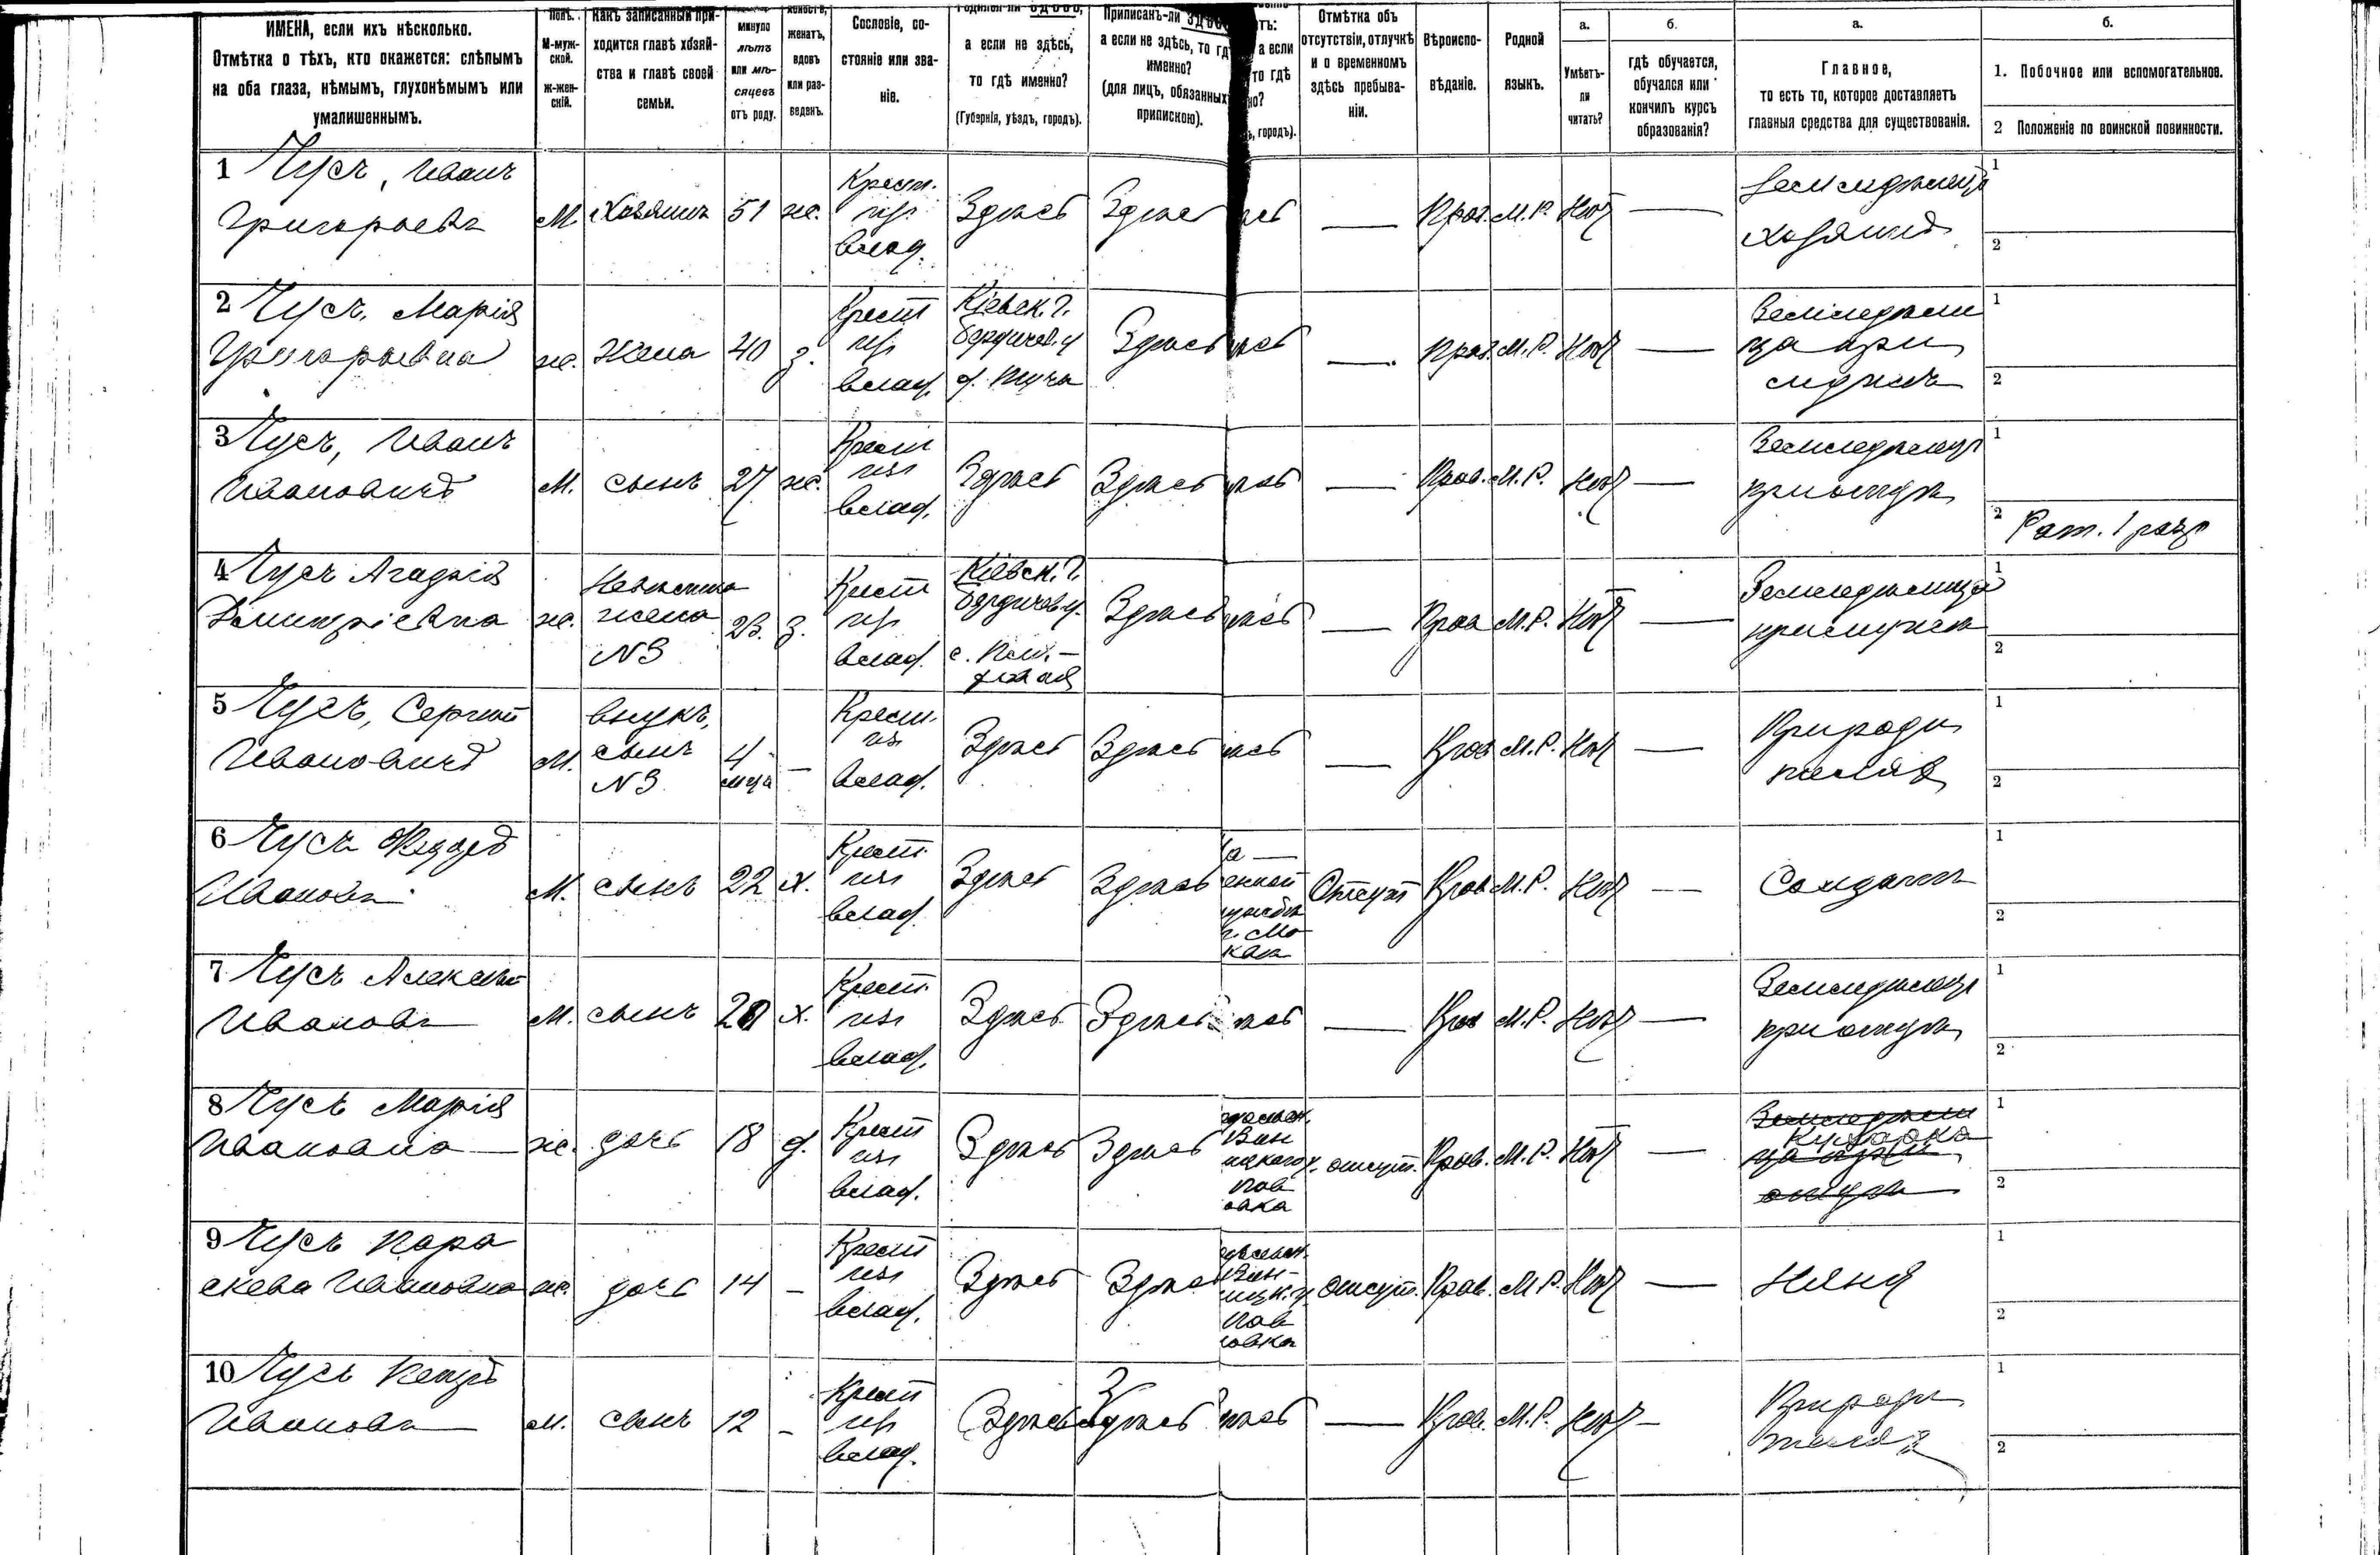 ИМЕНА, если ихъ нѣсколько.
Отмѣтка о тѣхъ, кто окажется: слѣпымъ
на оба глаза, нѣмымъ, глухонѣмымъ или
умалишеннымъ.
М-муж-
ской.
Ж-жен-
скій.
Какъ записанный при-
ходится главѣ хозяй-
ства и главѣ своей
семьи.
минуло
лѣтъ
или мѣ-
сяцевъ
отъ роду.
женатъ,
вдовъ
или раз-
веденъ.
Сословіе, со-
стояніе или зва-
ніе.
а если не здѣсь,
то гдѣ именно?
(Губернія, уѣздъ, городъ).
Приписанъ-ли здѣсь
а если не здѣсь, то гдѣ
именно?
(для лицъ, обязанныхъ
припискою).
а если
то гдѣ
городъ).
Отмѣтка объ
отсутствіи, отлучкѣ
и о временномъ
здѣсь пребыва-
ніи.
Вѣроиспо-
вѣданіе.
Родной
языкъ.
а.
Умѣетъ-
ли
читать?
б.
гдѣ обучается,
обучался или
кончилъ курсъ
образованія?
а.
Главное,
то есть то, которое доставляетъ
главныя средства для существованія.
б.
1. Побочное или вспомогательное.
2 Положеніе по воинской повинности.
1 Чусъ, Иванъ
Григорьевъ
М. Хозяинъ 51 ж.
Крест.
из
влад.
Здѣсь Здѣсь — Прав. М. Р. Нѣт —
Земледѣлецъ
хозяинъ
1
2
2 Чусъ, Марія
Григорьевна
ж. Жена 40 з.
Крест
из
влад.
Кіевск. г.
Бердичев. у
Здѣсь — Прав. М. Р. Нѣт —
Земледѣли
ца при
1
2
3 Чусъ, Иванъ
Ивановичъ
М. сынъ 27 ж.
Крест
из
влад.
Здѣсь Здѣсь — Прав. М. Р. Нѣт —
Земледѣлецъ
при отцѣ
1
2 Рат. 1 разр
4 Чусъ Агафія
Димитріевна
ж.
Невѣстка
жена
N 3
23. з.
Крест
из
влад.
Кіевск. г.
Бердичев. у.
Здѣсь — Прав М. Р. Нѣт —
Земледѣлица
при мужѣ
1
2
5 Чусъ, Сергѣй
Ивановичъ
М.
внукъ,
сынъ
N 3
4
мца
—
Крест.
из
влад.
Здѣсь Здѣсь — Прав М. Р. Нѣт —
При роди
теляхъ
1
2
6 Чусъ Ѳедоръ
Ивановъ
М. сынъ 22 х.
Крест.
из
влад.
Здѣсь Здѣсь
Отсут Прав М. Р. Нѣт —
Солдатъ
1
2
7 Чусъ Алексѣй
Ивановъ
М. сынъ х.
Крест.
из
влад.
Здѣсь Здѣсь — Прав М. Р. Нѣт —
Земледѣлецъ
при отцѣ
1
2
8 Чусъ Марія
Ивановна
ж. дочь 18 д.
Крест
из
влад.
Здѣсь Здѣсь
отсут. Прав. М. Р. Нѣт —
Земледѣли
Кухарка
ца при
отцѣ
1
2
9 Чусъ Пара
скева Ивановна
ж. дочь 14 —
Крест
из
влад.
Здѣсь Здѣсь
отсут. Прав. М. Р. Нѣт —
Няня
1
2
10 Чусъ Петръ
Ивановъ
М. сынъ 12 —
Крест
из
влад.
Здѣсь Здѣсь — Прав. М. Р. Нѣт —
При роди
теляхъ
1
2